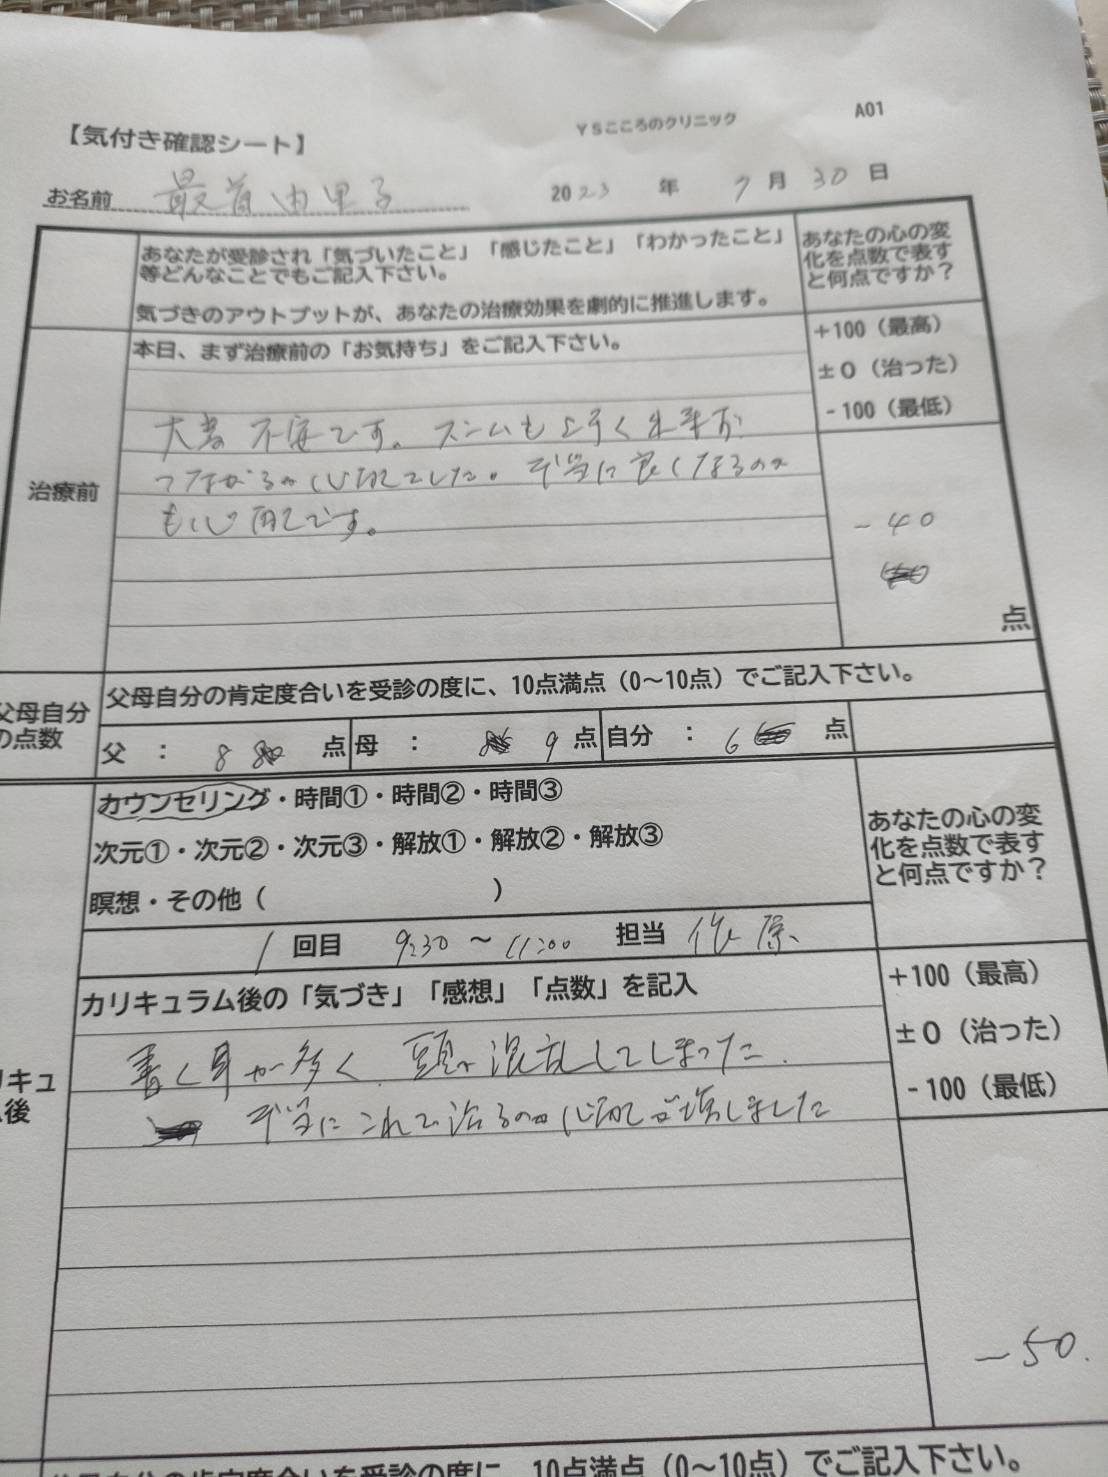 A01
【気付き確認シート】 YSこころのクリニック
お名前 最首由里子 2023年 7月30日
あなたが受診され「気づいたこと」「感じたこと」「わかったこと」
等どんなことでもご記入下さい。
気づきのアウトプットが、あなたの治療効果を劇的に推進します。
あなたの心の変
化を点数で表す
と何点ですか？
治療前
本日、まず治療前の「お気持ち」をご記入下さい。
大変不安です。ズームも上手く出来ず
つながるか心配でした。本当に良くなるのか
も心配です。
+100（最高）
±0（治った）
-100（最低）
-40
点
父母自分
の点数
父母自分の肯定度合いを受診の度に、10点満点（0～10点）でご記入下さい。
父 ： 8 点 母 ： 9 点 自分 ： 6 点
カウンセリング・時間①・時間②・時間③
次元①・次元②・次元③・解放①・解放②・解放③
瞑想・その他（ ）
あなたの心の変
化を点数で表す
と何点ですか？
1 回目 9:30 ～ 11:00 担当
リキュ
後
カリキュラム後の「気づき」「感想」「点数」を記入
書く事が多く、頭が混乱してしまった、
本当にこれで治るのか心配が増しました
+100（最高）
±0（治った）
-100（最低）
-50.
10点満点（0～10点）でご記入下さい。